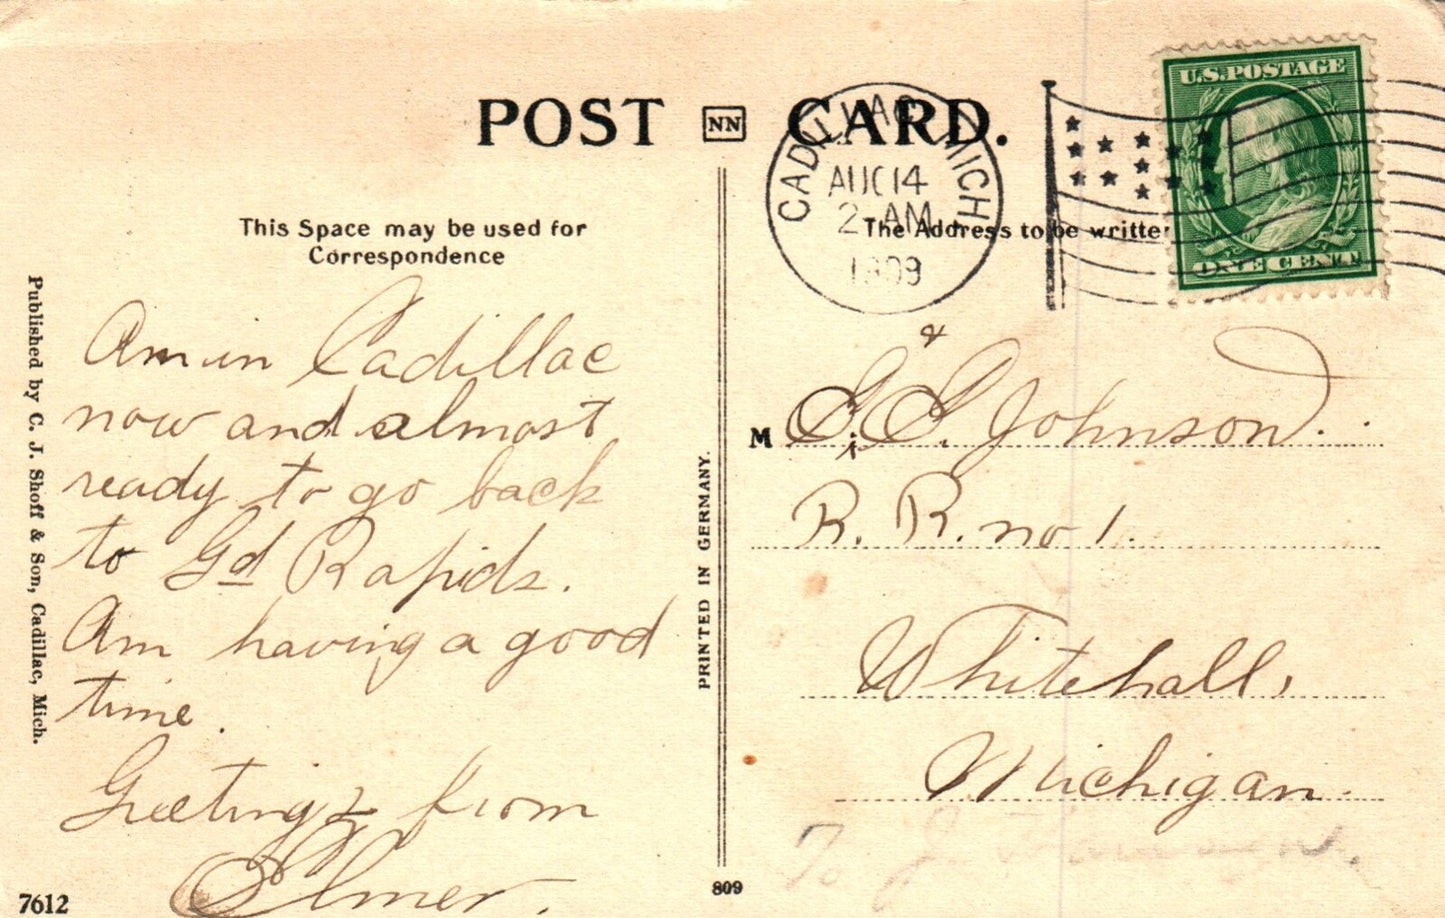 POST NN CARD.
CADILLAC MICH
AUG 14
2-AM
1909
U.S. POSTAGE
ONE CENT
This Space may be used for
Correspondence
The Address to be written
Published by C. J. Shoff & Son, Cadillac, Mich.
Am in Cadillac
now and almost
ready to go back
to Gd Rapids.
Am having a good
time.
Greetings from
Elmer.
PRINTED IN GERMANY.
&
M G. G. Johnson.
R. R. no 1.
Whitehall,
Michigan.
To J
7612
809